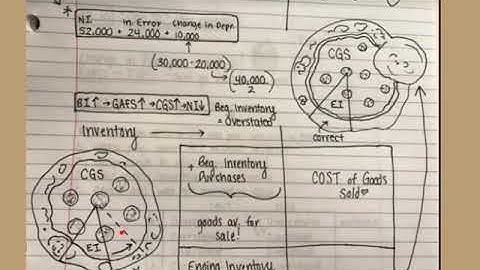 *
NI in Error Change in Depr.
52,000 + 24,000 + 10,000
(30,000 - 20,000)
(40,000
2)
BI↑ → GAFS↑ → CGS↑ → NI↓
Beg. Inventory
= overstated
CGS
EI
correct
Inventory →
CGS
EI
+ Beg. Inventory
Purchases
goods av. for
sale!
COST of Goods
Sold♡
Ending Inventory